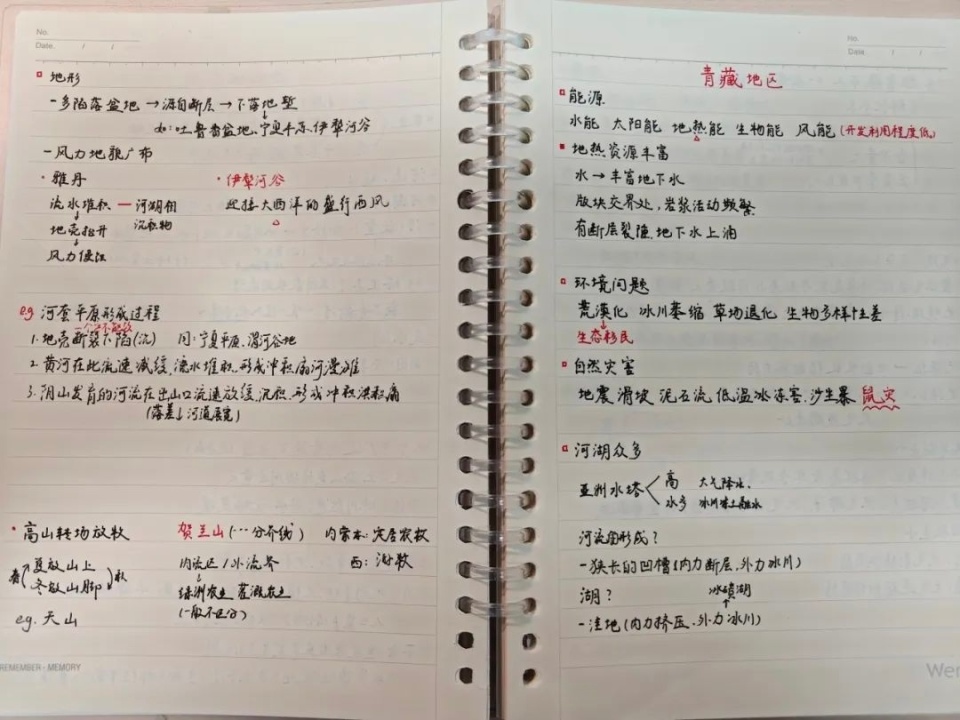 No.
Date. / /
地形
-多陷落盆地→源自断层→下落地堑
如:吐鲁番盆地、宁夏平原、伊犁河谷
-风力地貌广布
·雅丹
流水堆积—河湖相沉积物
地壳抬升
风力侵蚀
·伊犁河谷
迎接大西洋的盛行西风
eg 河套平原形成过程
1.地壳断裂下陷(沉) 同:宁夏平原、渭河谷地
2.黄河在此流速减缓,流水堆积,形成冲积扇河漫滩
3.阴山发育的河流在出山口流速放缓,沉积,形成冲积洪积扇
(落差↓河道展宽)
·高山转场放牧
夏牧山上
冬牧山脚
春 秋
eg.天山
贺兰山(…分界线)
内流区/外流界
绿洲农业 灌溉农业
(一般不区分)
内蒙东:定居农牧
西:游牧
REMEMBER·MEMORY
No.
Date. / /
青藏地区
能源
水能 太阳能 地热能 生物能 风能(开发利用程度低)
地热资源丰富
水→丰富地下水
版块交界处,岩浆活动频繁
有断层裂隙,地下水上涌
环境问题
荒漠化 冰川萎缩 草场退化 生物多样性差
生态移民
自然灾害
地震 滑坡 泥石流 低温冰冻害、沙尘暴 鼠灾
河湖众多
亚洲水塔
高 大气降水、
水多 冰川冻土融水
河流咋形成?
-狭长的凹槽(内力断层、外力冰川)
湖? 冰碛湖
-洼地(内力挤压、外力冰川)